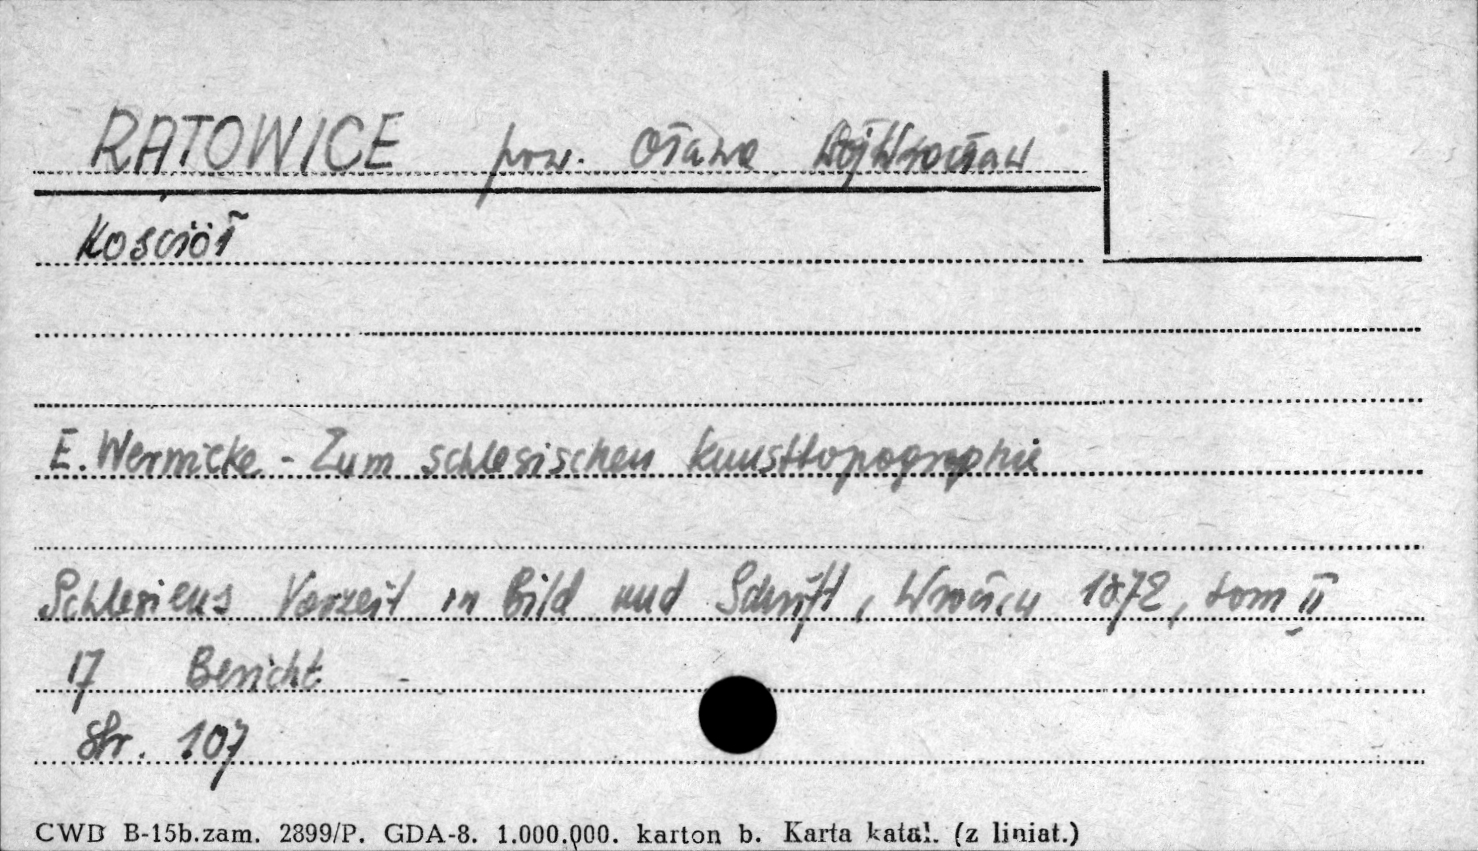 RATOWICE pow. Oława Woj Wrocław
Kościół
E. Wernicke - Zum schlesischen Kunsttopographie
Schlesiens Vorzeit in Bild und Schrift, 1872, tom II
17 Bericht -
Str. 107
CWD B-15b.zam. 2899/P. GDA-8. 1.000.000. karton b. Karta katal. (z liniat.)